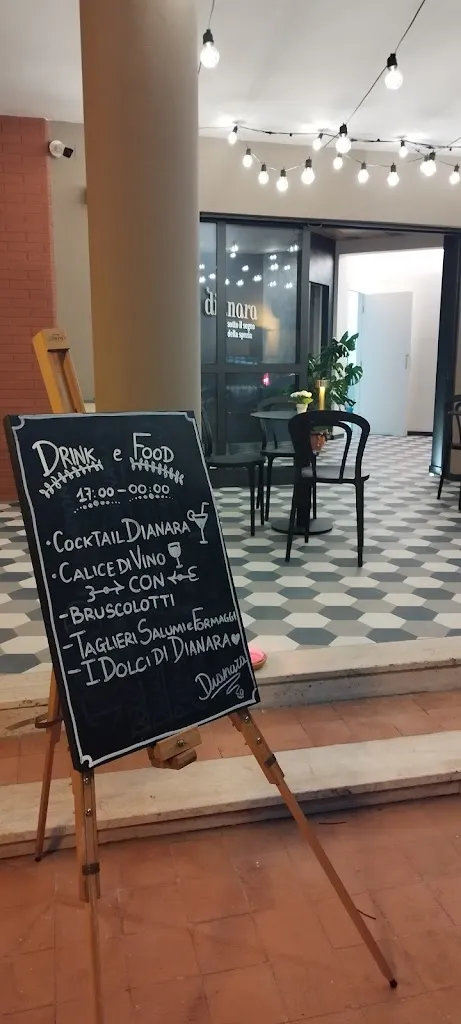 dianara
sotto il segno
della spezia
DRINK e FOOD
17:00 - 00:00
• COCKTAIL DIANARA
• CALICE DI VINO
CON
- BRUSCOLOTTI
- TAGLIERI SALUMI e FORMAGGI
- I DOLCI DI DIANARA
Dianara